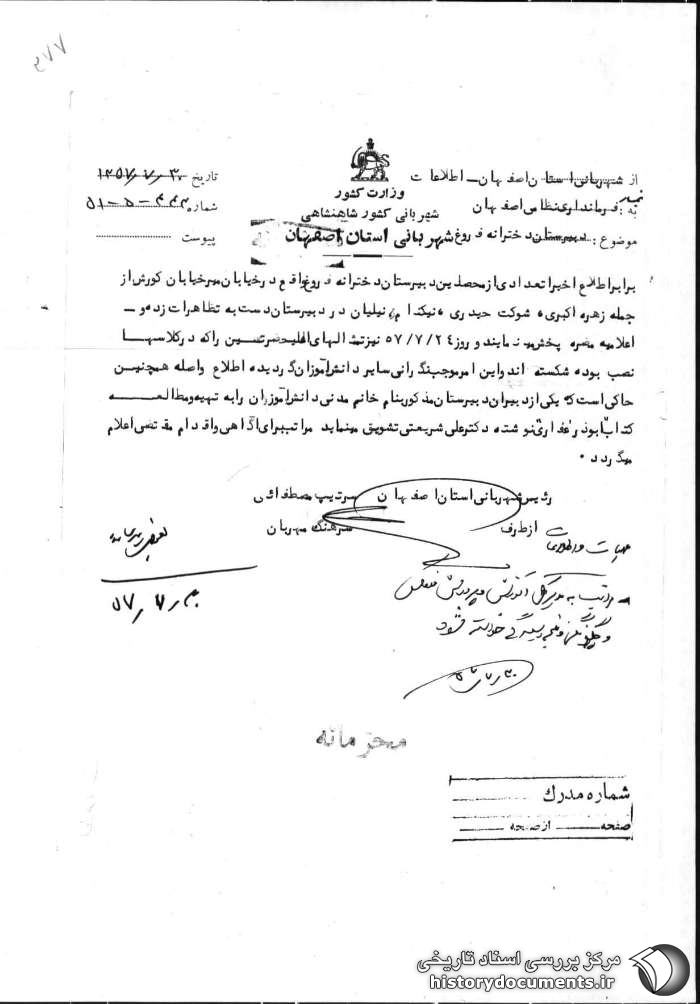 از شهربانی استان اصفهان - اطلاعات
به: فرمانداری نظامی اصفهان
موضوع: دبیرستان دخترانه فروغ
وزارت کشور
شهربانی کشور شاهنشاهی
شهربانی استان اصفهان
تاریخ ۱۳۵۷/۷/۳۰
شماره ۴۴۳-۵-۵۱
پیوست
برابر اطلاع اخیرا تعدادی از محصلین دبیرستان دخترانه فروغ واقع در خیابان میر خیابان کورش از
جمله زهره اکبری، شوکت حیدری، نیکدام نیلیان در دبیرستان دست به تظاهرات زده و
اعلامیه مضره پخش مینمایند و روز ۵۷/۷/۲۴ نیز تمثالهای اعلیحضرتین را که در کلاسها
نصب بوده شکسته اند و این امر موجب نگرانی سایر دانش آموزان گردیده اطلاع واصله همچنین
حاکی است که یکی از دبیران دبیرستان مذکور بنام خانم مدنی دانش آموزان را به تهیه و مطالعه
کتاب ابوذر غفاری نوشته دکتر علی شریعتی تشویق مینماید مراتب برای آگاهی و اقدام مقتضی اعلام
میگردد.
رئیس شهربانی استان اصفهان سرتیپ مصطفائی
از طرف سرهنگ مهربان
مراتب به مدیر کل آموزش و پرورش منعکس
و رسیدگی خواسته شود
۳۰/۷/۵۷
محرمانه
شماره مدرك
صفحه از صفحه
مرکز بررسی اسناد تاریخی
historydocuments.ir